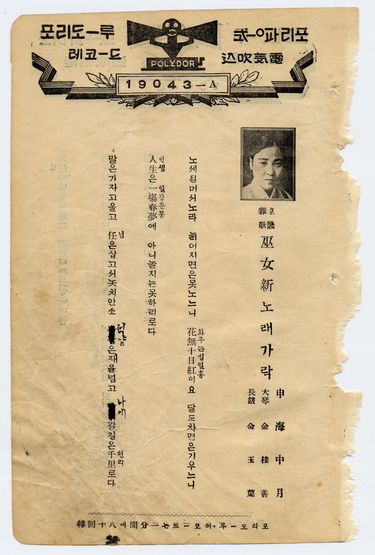 포리도-루
레코-드
포리파-ㅇ式
電氣吹込
POLYDOR
19043-A
巫女新노래가락
申海中月
大琴 金桂善
長鼓 金玉葉
노세절머서노라 늙어지면은못노느니 花無十日紅이요 달도차면은기우느니
人生은一場春夢에 아니놀지는못하리로다
말은가자고울고 任은잡고서놋치안소 석양은재을넘고 나에갈길은千里로다
一分間에八十回轉